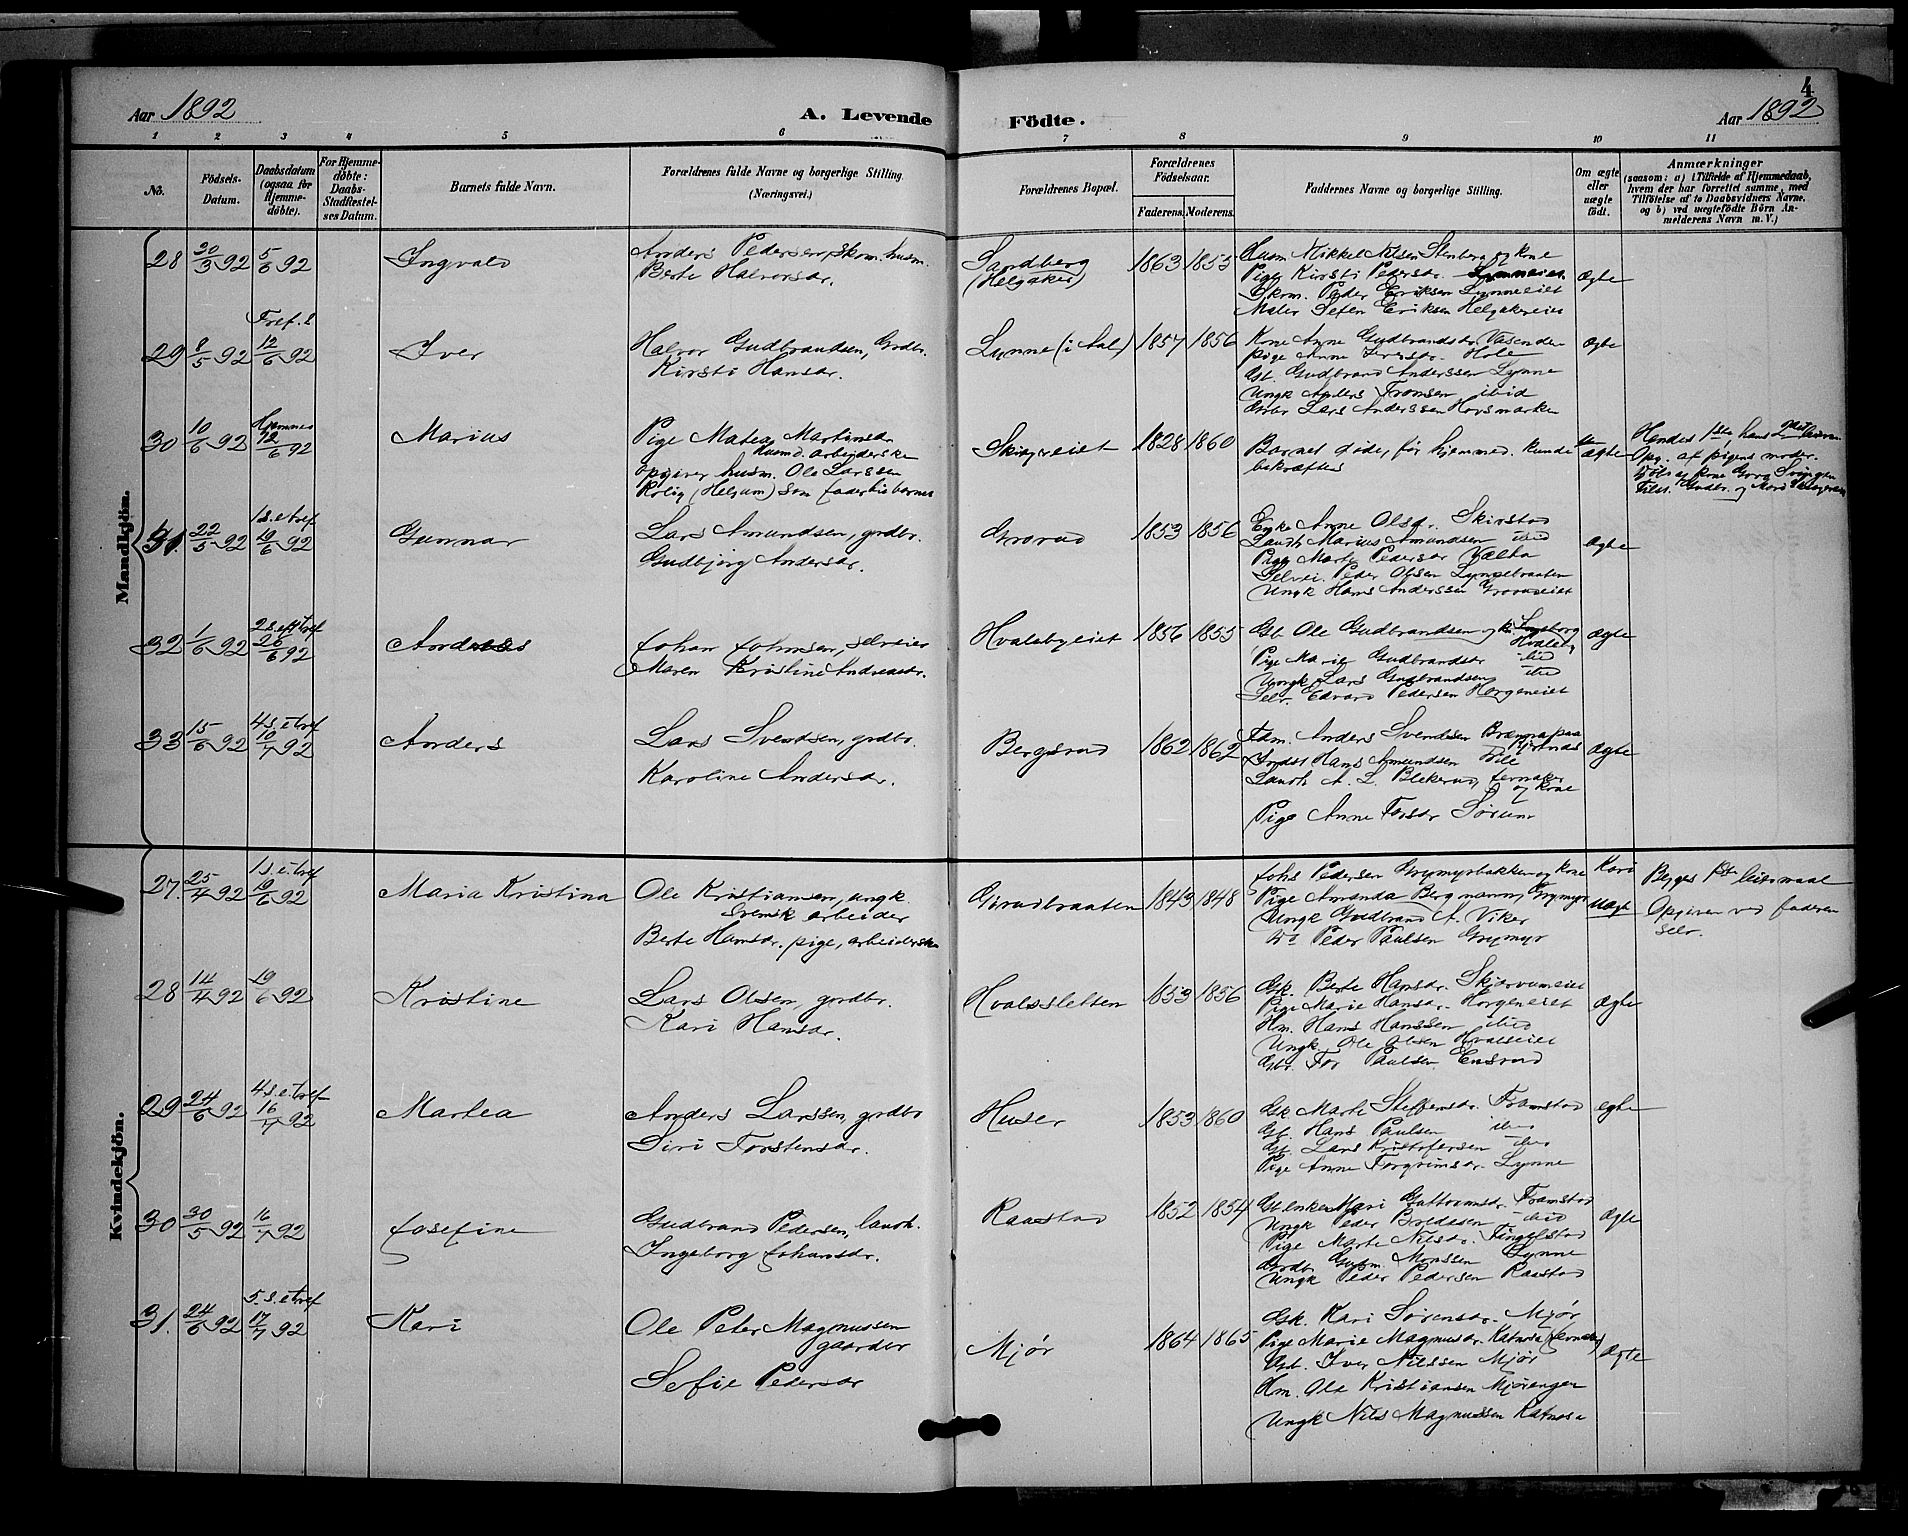 4
Aar 1892 A. Levende Födte. Aar 1892
1 2 3 4 5 6 7 8 9 10 11
No.
Födsels-Datum.
Daabsdatum (ogsaa for Hjemme-döbte).
For Hjemme-döbte: Daabs-Stadfæstel-ses Datum.
Barnets fulde Navn.
Forældrenes fulde Navne og borgerlige Stilling. (Næringsvei.)
Forældrenes Bopæl.
Forældrenes Födselsaar.
Faderens. Moderens.
Faddernes Navne og borgerlige Stilling.
Om ægte eller uægte födt.
Anmærkninger
(saasom: a) i Tilfælde af Hjemmedaab, hvem der har forrettet samme, med Tilföielse af to Daabsvidners Navne. og b) ved uægtefödte Börn An-melderens Navn m. V.)
Mandkjön.
28 20/3 92 5/6 92 Ingvald
Anders Pedersen, skom. husm.
Berte Halvorsdr.
Sandberg
(Helgaker)
1863 1855
Husm. Mikkel Nilsen Stenberg og kone
Pige Kirsti Pedersdr.
Skom. Peder Eriksen Lynneeiet
Maler Eriksen Helgakereiet
Ægte
29 8/5 92 Tref. s 12/6 92 Iver
Halvor Gudbrandsen, Grdbr.
Kirsti Hansdr.
Lynne (i Aal)
1857 1856
Kone Anne Gudbrandsdr. Vasenden
Pige Anne Iversdr. Hole
Gbf. Gudbrand Anderssen Lynne
Ungk. Anders Tronsen ibid
Gbr. Lars Anderssen Hovsmarken
Ægte
30 10/6 92 Hjemmed 12/6 92 Marius
Pige Matea Martinsdr.
husmd. arbeiderske
opgiver husm. Ole Larssen
Rolig (Helgum) som fader til barnet
Skiagereiet
1828 1860
Barnet døde, før hjemmed. kunde
bekræftes
uægte
Hendes 1ste, hans 2det leierm.
Opg. af pigens moder.
31. 22/5 92 1 s. e tref 19/6 92 Gunnar
Lars Amundsen, grdbr.
Gudbjørg Andersdr.
Grorud
1853 1856
Enke Anne Olsdr. Skirstad
Landh. Marius Amundsen ibid
Pige Marte Pedersdr. Velta
Selvei. Peder Olsen Lyngebraaten
Ungk Hans Anderssen
Ægte
32 1/6 92 2 s. eft tref 26/6 92 Andreas
Johan Johnsen, selveier
Maren Kristine Andreasdr.
Hvalebyeiet
1856 1855
Gb. Ole Gudbrandsen og
Hvaleby
Pige Marie Gudbrandsdr ibid
Ungk Lars Gudbrandsen ibid
Selv. Edvard Pedersen Horgeneiet
Ægte
33 15/6 92 4 s. e tref 10/7 92 Anders
Lars Svendsen, grdbr.
Karoline Andersdr.
Bergsrud
1862 1862
Fdm. Anders Svendsen
Hans Amundsen
Landh. A. L. Blekerud, Jernaker
og kone
Pige Anne Torsdr Sørum
Ægte
Kvindekjön.
27. 25/4 92 1 s. e. tref 19/6 92 Maria Kristina
Ole Kristiansen, ungk.
svensk arbeider
Berte Hansdr. pige, arbeiderske
Grudbraaten
1843 1848
Johs Pedersen Grymyrbakken og kone Kari
Pige Amanda Bergmann, Grymyr
Ungk Gudbrand A. Viker
do Peder Paulsen Grymyr
uægte
Begges 1ste leiermaal
Opgiven ved faderen
selv.
28 14/4 92 19/6 92 Kristine
Lars Olsen, grdbr.
Kari Hansdr.
Hvalssletten
1853 1856
Gk. Berte Hansdr. Skjervumeiet
Pige Marie Hansdr. Horgeneiet
Hm. Hans Hanssen ibid
Ungk. Ole Olsen Hvalseiet
Gbr. Tor Paulsen Ensrud
Ægte
29 24/6 92 4 s. e. tref 16/7 92 Martea
Anders Larssen, grdbr
Siri Torstensdr.
Huser
1853 1860
Gk Marte Steffensdr. Framstad
Gbf. Hans Paulsen ibid
Gbf. Lars Kristofersen ibid
Pige Anne Torgrimsdr. Lynne
Ægte
30 30/5 92 16/7 92 Josefine
Gudbrand Pedersen, landh.
Ingeborg Johansdr.
Raastad
1852 1854
Gbenke Mari Guttormsdr. Framstad
Ungk Peder Bredesen ibid
Pige Marte Nilsdr. Tingelstad
Grdbr. Gutm. Monssen Lynne
Ungk Peder Pedersen Raastad
Ægte
31. 24/6 92 5. s. e tref 17/7 92 Kari
Ole Peter Magnussen
gaardbr
Sofie Pedersdr
Mjør
1864 1865
Gk. Kari Sørensdr. Mjør
Pige Marie Magnusdr. Katnosa (Jevnaker)
Gbf. Iver Nilssen Mjør
Hm. Ole Kristiansen Mjørengen
Ungk Nils Magnussen Katnosa
Ægte